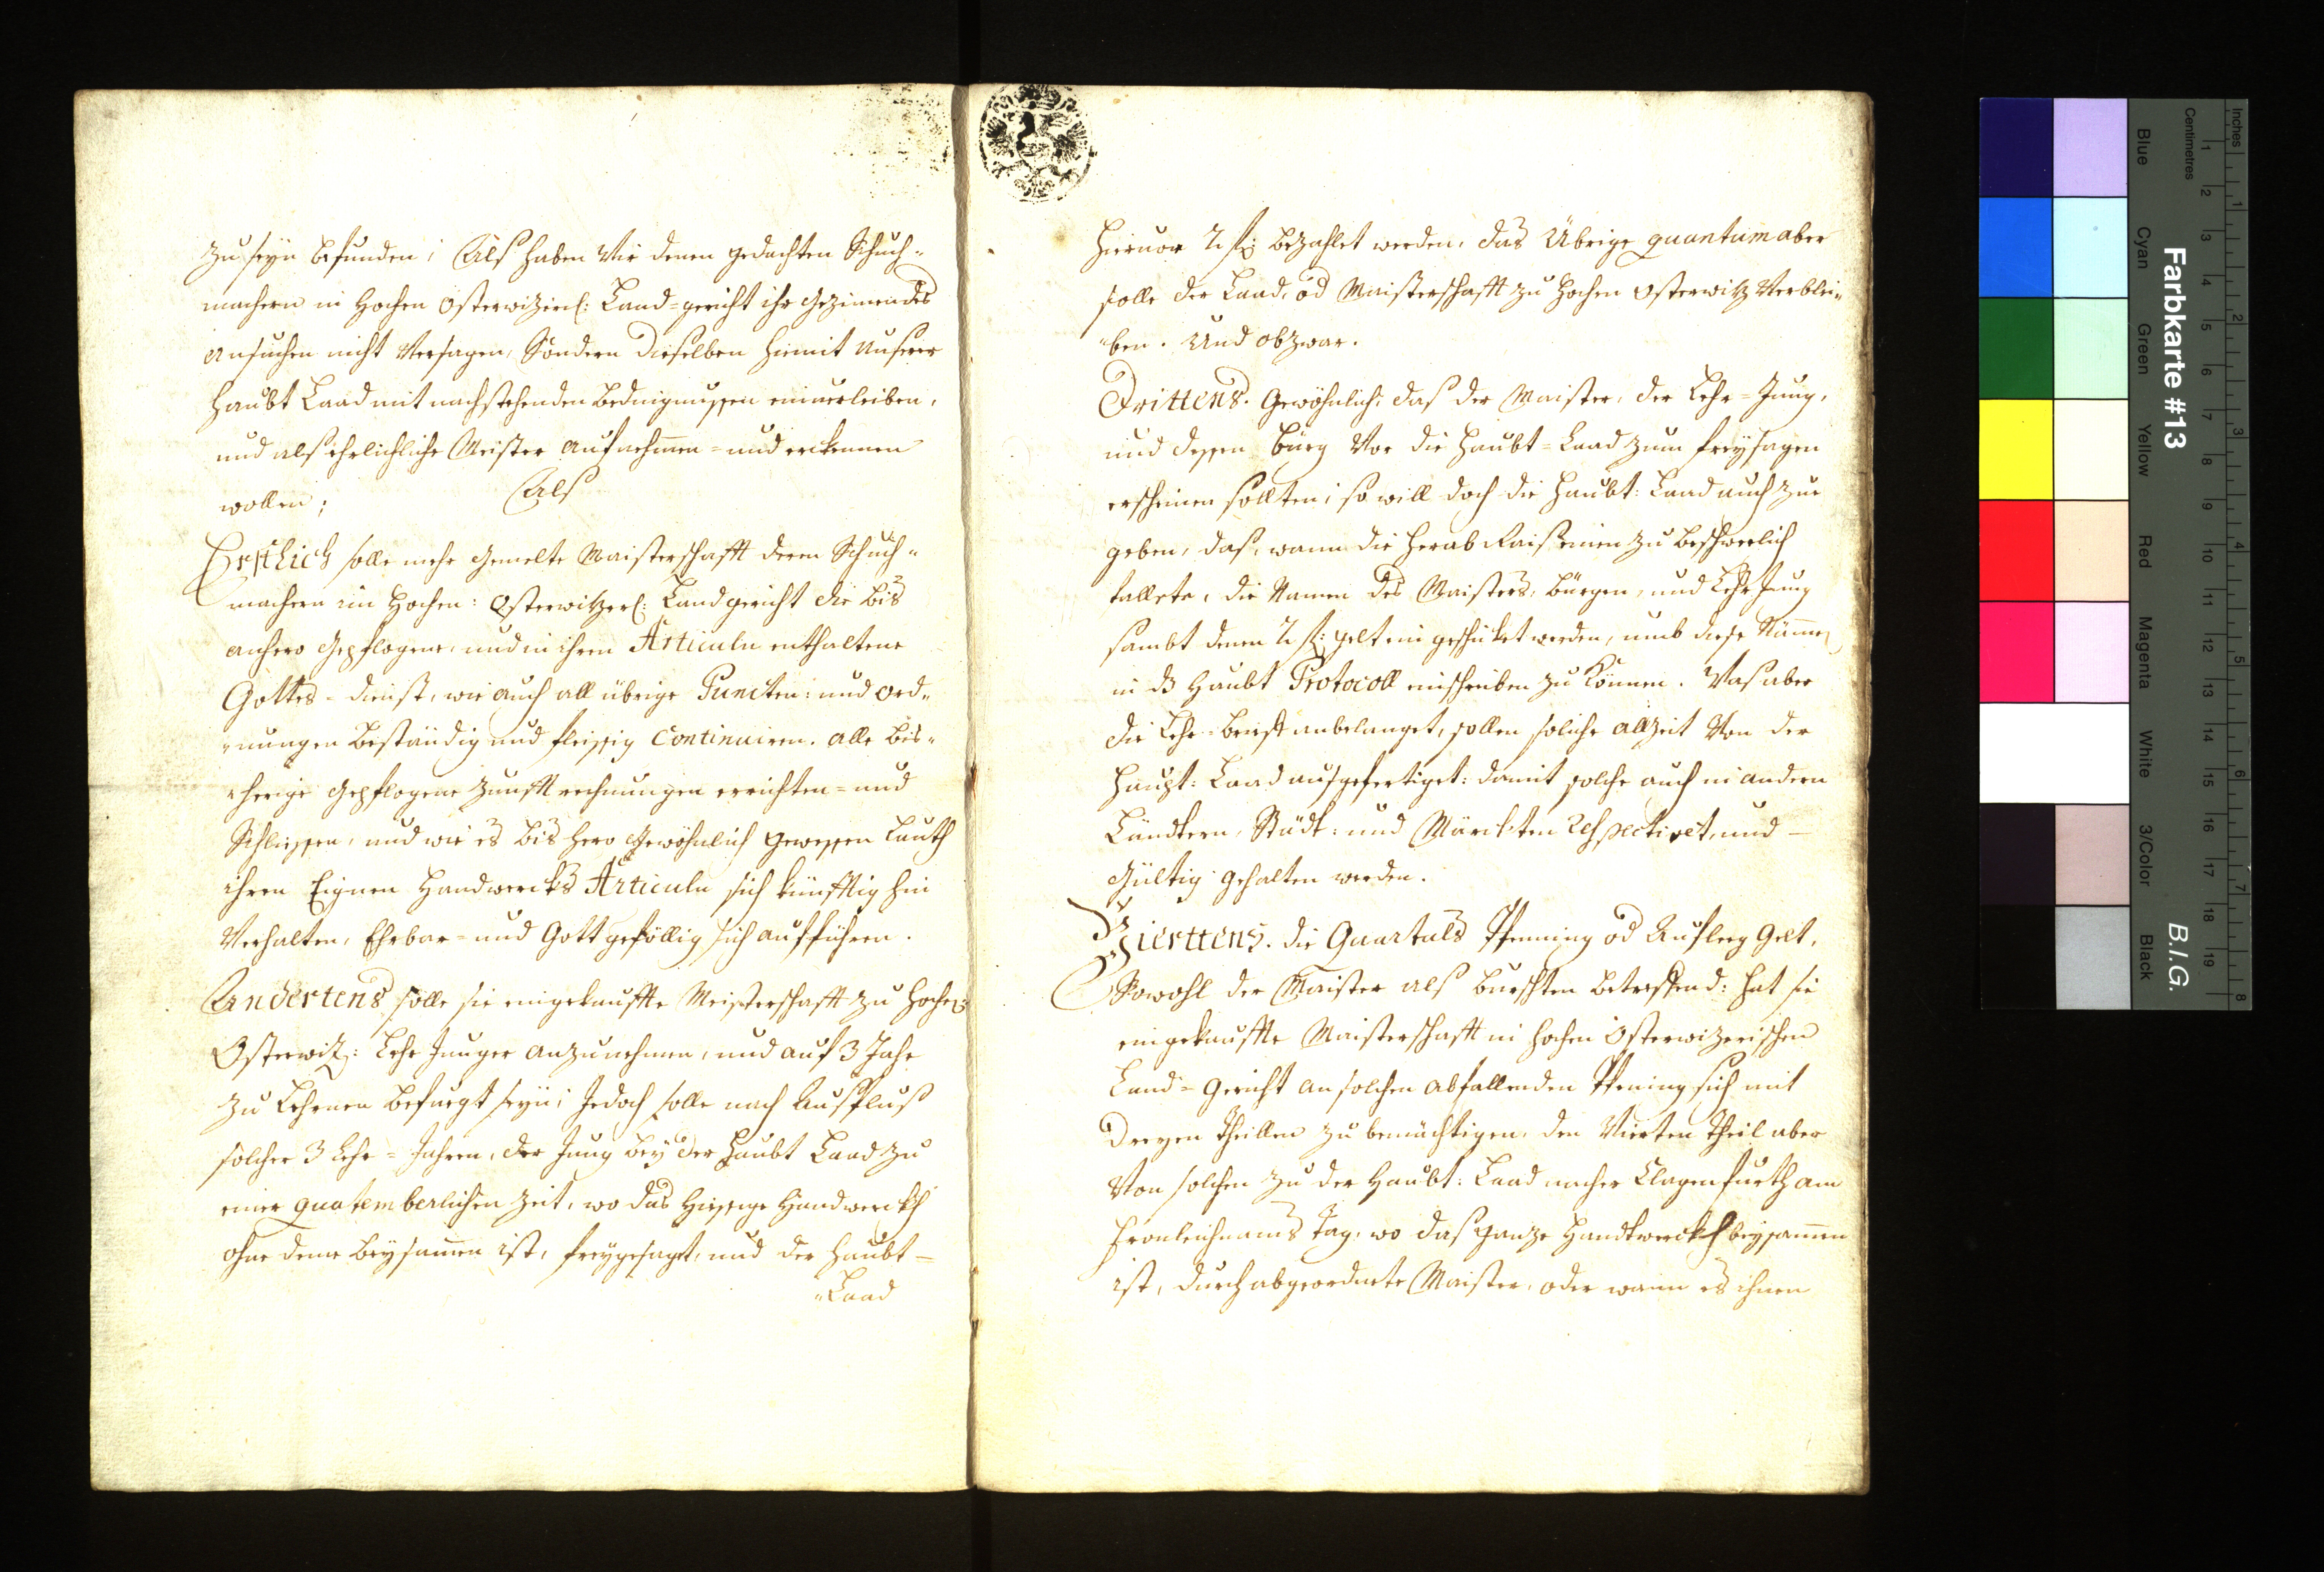 zu seyn befunden; Als haben wir denen gedachten Schuch-
machern in Hochen Osterwizerl: Land-gericht ihr geziemendes
ansuchen nicht versagen, Sondern dieselben hiemit unserer
Haubt Laad mit nachstehenden bednignussen einverleiben,
und als ehrlichliche Meister aufnehmen- und erkennen
wollen; Als
Erstlich solle mehr gemelte Maisterschafft deren Schuch-
machern im Hochen: Osterwitzerl: Landgericht die bis
anhero gepflogene, und in ihren Articuln enthaltene
Gottes-dienst, wie auch all übrige Puncten: und ord-
-nungen beständig und fleissig Continuiren. alle bis-
-herige gepflogene Zunfft rechnungen errichten- und
Schliessen, und wie es bis hero gewöhnlich gewessen lauth
ihren Eignen Handwercks Articuln sich künfftig hin
verhalten, Ehrbar- und Gott gefällig sich aufführen.
Andertens solle sie eingekauffte Meisterschafft zu Hochen:
Osterwitz: Lehr Junger anzunehmen, und auf 3 Jahr
zu Lehrnen befuegt seyn; Jedoch solle nach Ausfluß
solcher 3 Lehr-Jahren, der Jung bey der Haubt Laad zu
einer quatemberlichen zeit, wo das Hiessige Handwerckh
ohne deme beysamen ist, freygesagt, und der Haubt-
-Laad
hiervor 2 fl: bezahlet werden, das Übrige quantum aber
solle der Laad, od Maisterschafft zu Hochen Osterwitz verblei-
-ben. Und obzwar.
Drittens. Gewöhnlich: das der Maister, der Lehr-Jung,
und dessen bürg vor die Haubt-Laad zum freysagen
erscheinen sollten; so will doch die Haubt: Laad auch zue
geben, das, wann die herab Rais einen zu beschwerlich
fallete, die Namen des Maisters, bürgen, und Lehr Jung
sambt denen 2 fl: gelt ein geschicket werden, umb diese Nämen
in ds Haubt Protocoll einschreiben zu können. Was aber
die Lehr-brieff anbelanget, sollen soliche allzeit von der
Haupt: Laad ausgefertiget: damit solche auch in andern
Ländtern, Städt: und Märckten Respectiret, und -
Gültig gehalten werden.
Vierttens. die Quartals Pfenning od Aufleg Gelt,
Sowohl der Maister als burschten betreffend: hat sie
eingekauffte Maisterschafft in Hochen Osterwizerischen
Land-Gericht an solchen abfallenden Pfening sich mit
dreyen Theillen zu bemächtigen, den Vierten Theil aber
von solchen zu der Haubt: Laad nacher Clagenfurth am
Fronleichnams Tag, wo das ganze Handtwerckh beysamen
ist, durch abgeordnete Maister, oder wann es ihnen
Farbkarte #13
B.I.G.
Inches
Centimetres
Blue
Cyan
Green
Yellow
Red
Magenta
White
3/Color
Black
1 2 3 4 5 6 7 8 9 10 11 12 13 14 15 16 17 18 19
1 2 3 4 5 6 7 8